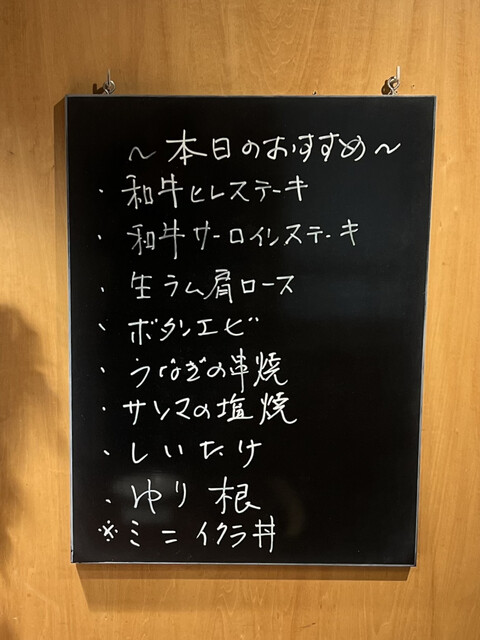 ～本日のおすすめ～
・和牛ヒレステーキ
・和牛サーロインステーキ
・生ラム肩ロース
・ボタンエビ
・うなぎの串焼
・サンマの塩焼
・しいたけ
・ゆり根
※ミニイクラ丼